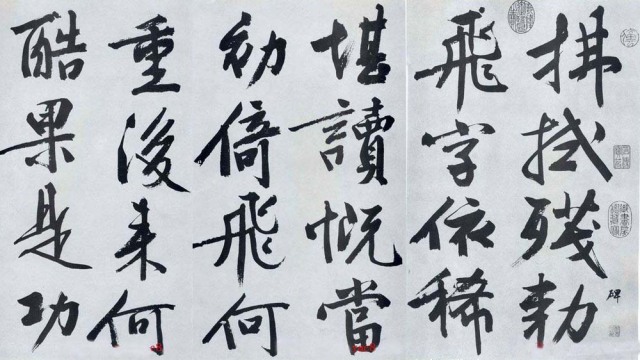 拂拭殘勅
碑
飛字依稀
堪讀慨當
初倚飛何
重後来何
酷果是功